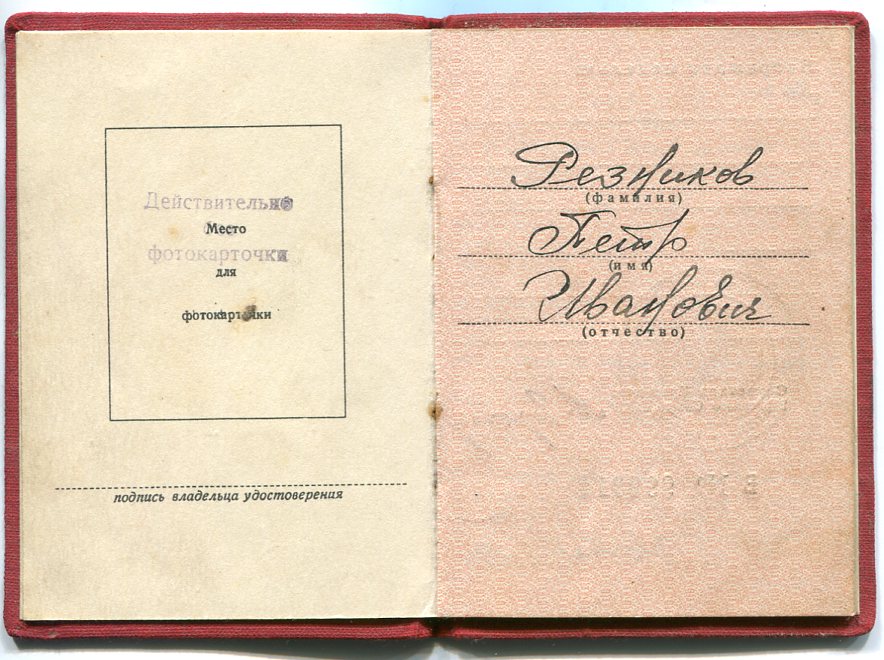 Действительно
без
Место
фотокарточки
для
фотокарточки
подпись владельца удостоверения
Резников
(фамилия)
Петр
(имя)
Иванович
(отчество)